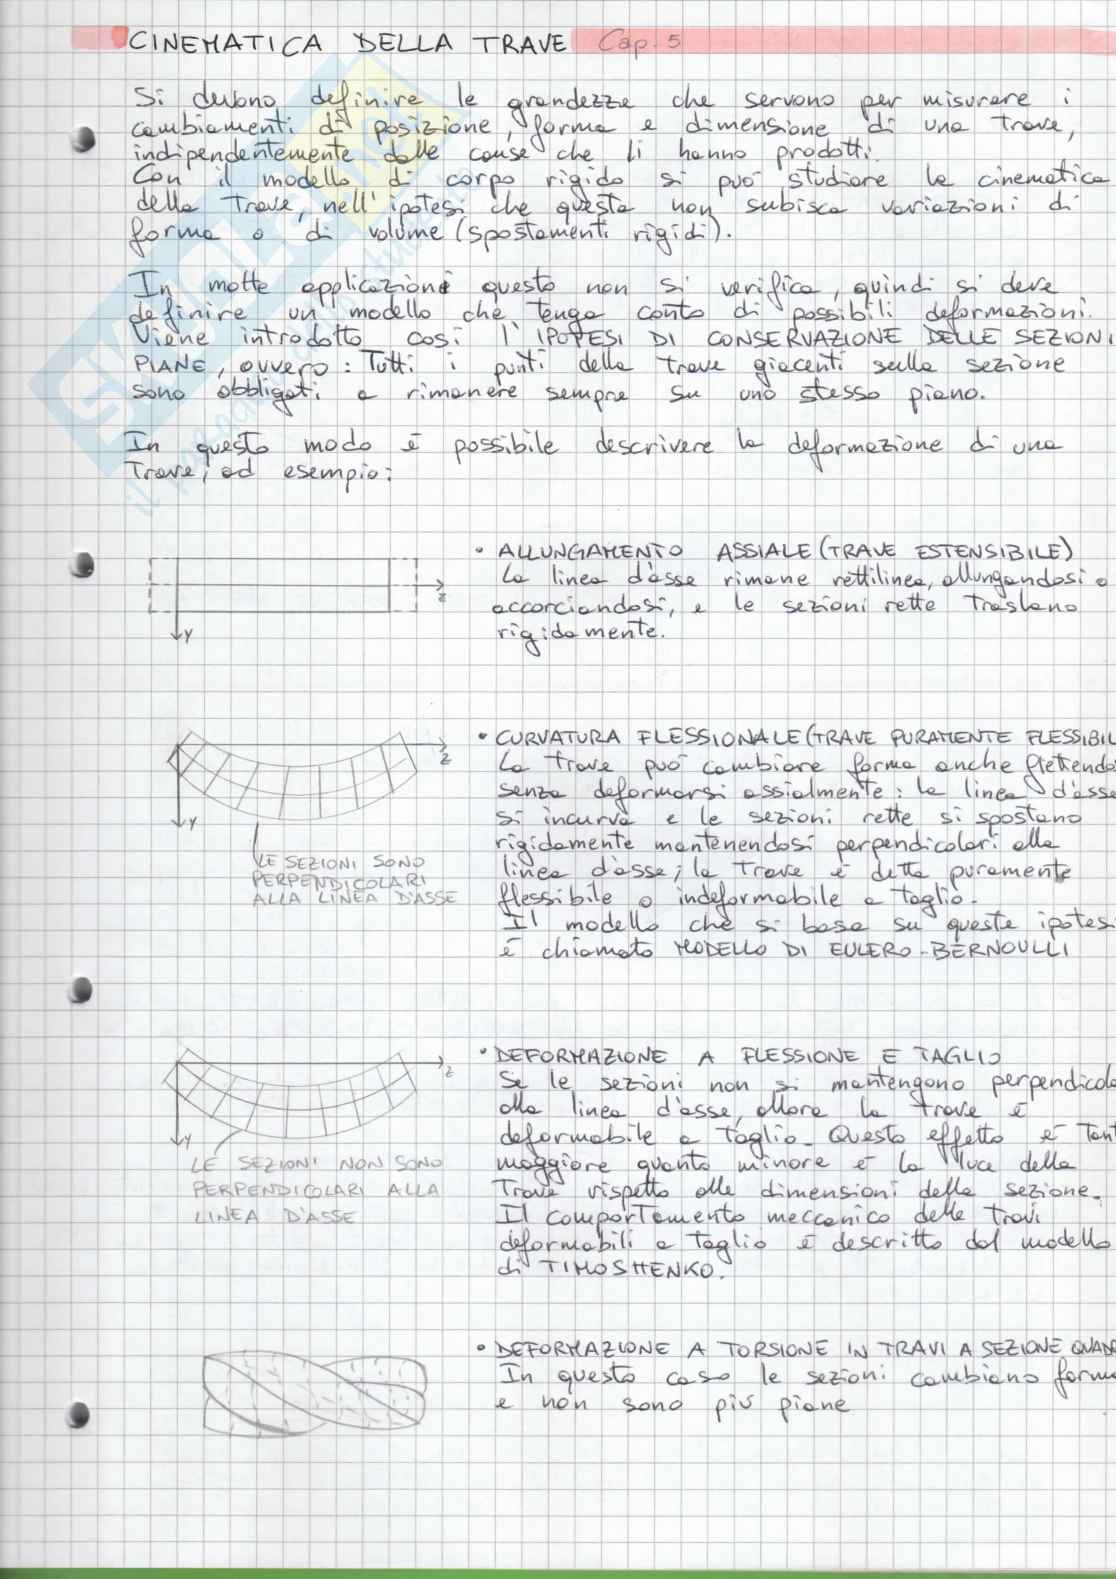 CINEMATICA DELLA TRAVE Cap. 5
Si devono definire le grandezze che servono per misurare i
cambiamenti di posizione, forma e dimensione di una trave,
indipendentemente dalle cause che li hanno prodotti.
Con il modello di corpo rigido si può studiare la cinematica
della trave, nell'ipotesi che questa non subisca variazioni di
forma o di volume (spostamenti rigidi).
In molte applicazioni questo non si verifica, quindi si deve
definire un modello che tenga conto di possibili deformazioni.
Viene introdotto così l'IPOTESI DI CONSERVAZIONE DELLE SEZIONI
PIANE, ovvero: Tutti i punti della trave giacenti sulla sezione
sono obbligati a rimanere sempre su uno stesso piano.
In questo modo è possibile descrivere la deformazione di una
Trave, ad esempio:
• ALLUNGAMENTO ASSIALE (TRAVE ESTENSIBILE)
La linea d'asse rimane rettilinea, allungandosi o
accorciandosi, e le sezioni rette traslano
rigidamente.
z
y
• CURVATURA FLESSIONALE (TRAVE PURAMENTE FLESSIBIL
La trave può cambiare forma anche flettendo
senza deformarsi assialmente: la linea d'asse
si incurva e le sezioni rette si spostano
rigidamente mantenendosi perpendicolari alla
linea d'asse; la trave è detta puramente
flessibile o indeformabile a taglio.
Il modello che si basa su queste ipotesi
è chiamato MODELLO DI EULERO-BERNOULLI
z
y
LE SEZIONI SONO
PERPENDICOLARI
ALLA LINEA D'ASSE
• DEFORMAZIONE A FLESSIONE E TAGLIO
Se le sezioni non si mantengono perpendicola
alla linea d'asse, allora la trave è
deformabile a taglio. Questo effetto è tant
maggiore quanto minore è la luce della
Trave rispetto alle dimensioni della sezione.
Il comportamento meccanico delle travi
deformabili a taglio è descritto dal modello
di TIMOSHENKO.
z
y
LE SEZIONI NON SONO
PERPENDICOLARI ALLA
LINEA D'ASSE
• DEFORMAZIONE A TORSIONE IN TRAVI A SEZIONE QUADR
In questo caso le sezioni cambiano forma
e non sono più piane